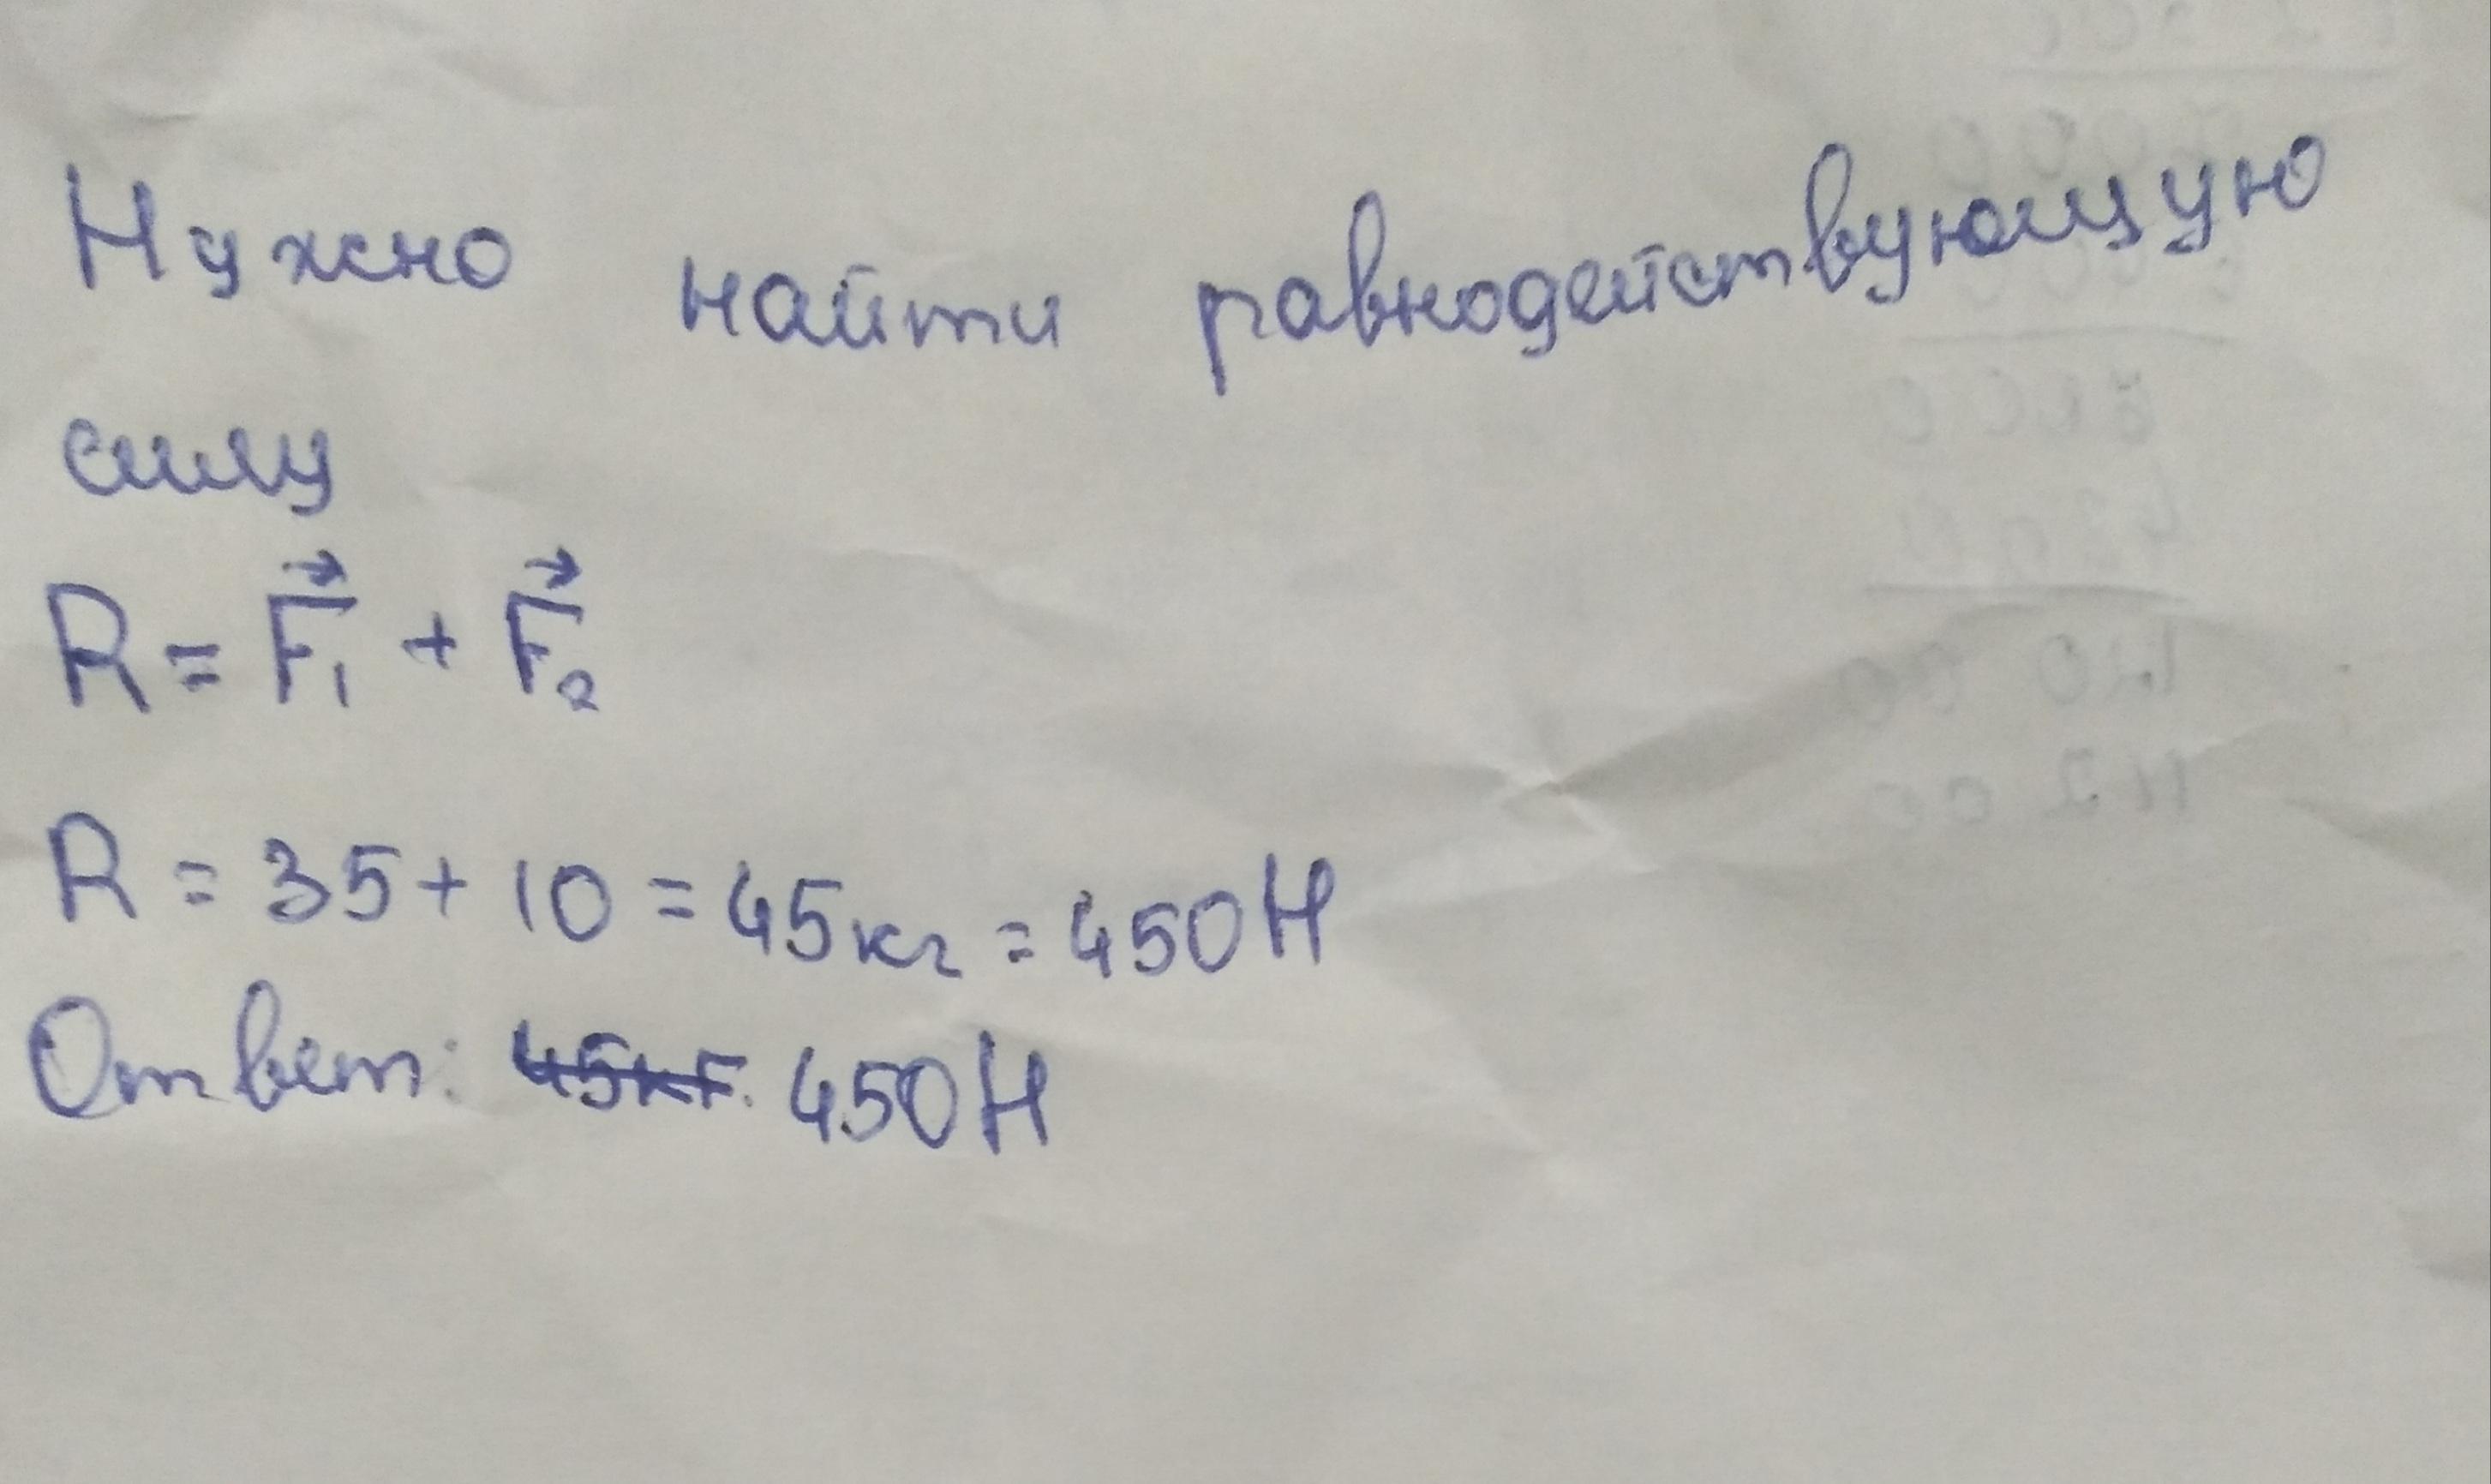 Нужно найти равнодействующую
силу
R = F₁ + F₂
R = 35 + 10 = 45кг = 450Н
Ответ: 45кг. 450Н